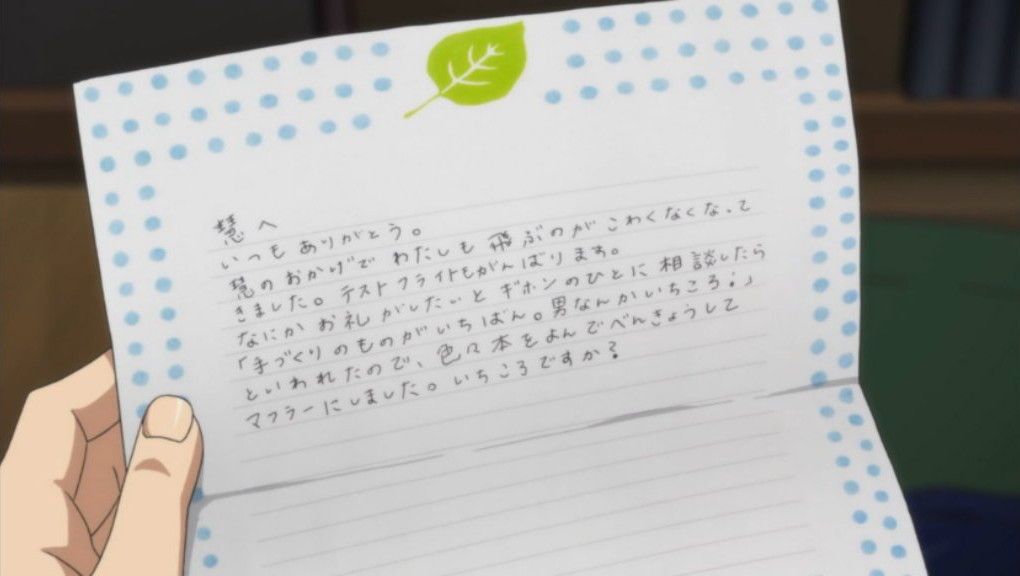 慧へ
いつもありがとう。
慧のおかげでわたしも飛ぶのがこわくなくなって
きました。テストフライトもがんばります。
なにかお礼がしたいとギホンのひとに相談したら
「手づくりのものがいちばん。男なんかいちころ！」
といわれたので、色々本をよんでべんきょうして
マフラーにしました。いちころですか？